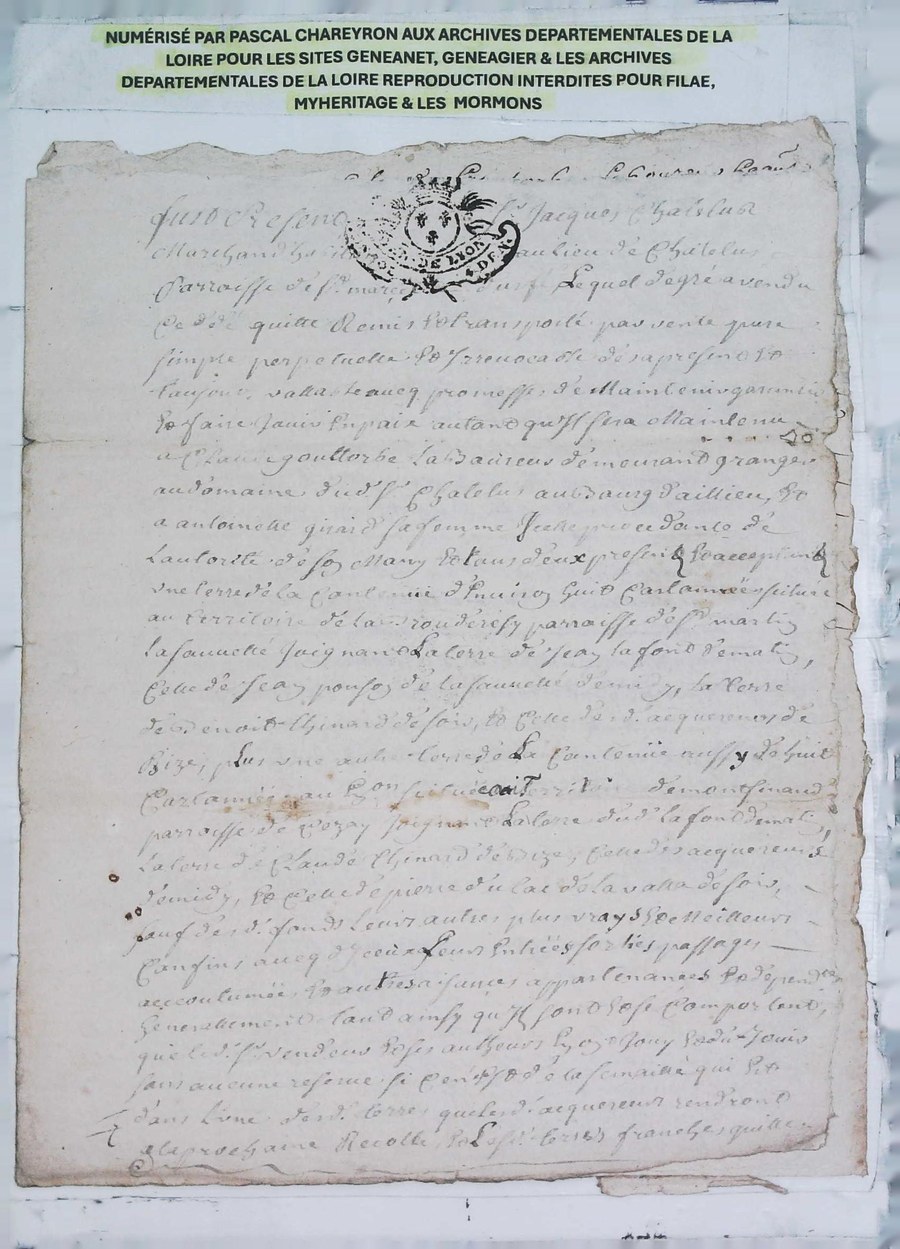 NUMÉRISÉ PAR PASCAL CHAREYRON AUX ARCHIVES DEPARTEMENTALES DE LA
LOIRE POUR LES SITES GENEANET, GENEAGIER & LES ARCHIVES
DEPARTEMENTALES DE LA LOIRE REPRODUCTION INTERDITES POUR FILAE,
MYHERITAGE & LES MORMONS
fust Présent Sr Jacques Chatelus
Marchand au lieu de Chatelus
Parroisse de St marcel Lequel de gré a vendu
Cedé quitte Remis Et transporté par vente pure
simple perpetuelle Et Irrevocable dés a present Et
toujours vallable avecq promesses de Maintenir garantir
Et faire Jouir En paix autand qu'Il sera Maintenu
a Claude gouttorbe Laboureur demeurant granger
au domaine dud Sr Chatelus au Bourg d'aillieu, Et
a antoinette girard sa femme Icelle procedante de
Lautorité de son Mary Et tous deux presents Et acceptants
une terre de la Contenüe d'Environ huit Cartonnées située
au territoire de parroisse de St martin
La sauveté Joignant La terre de Jean lafont de matin,
Celle de Jean ponson de la sauveté de midy, La terre
de Benoit Chinard de soir, Et Celle desd. acquereurs de
Bize, plus une autre terre de La Contenüe aussy de huit
Cartonnées située territoire de montfinand
parroisse de Cezay Joignant La terre dud. lafont de matin,
La terre de Claude Chinard de Bize, Celle des acquereurs
de midy, Et Celle de pierre dulac de la valla de soir,
sauf desd. fonds Leurs autres plus vrays Et Meilleurs
Confins avecq d'Iceux Leurs Entrées sorties passages
accoutumées Et autres aisances appartenances Et dépendces
Généralement tout ainsy qu'Ils sont Et se Comportent,
que led. Sr vendeur Et ses autheurs En ont Jouy Et dû Jouir
sans aucune reserve si Ce n'Est de la semaille qui Est
dans L'une desd. terres que lesd. acquereurs rendront
a la prochaine Recolte, Et Lesd. terres franches quittes